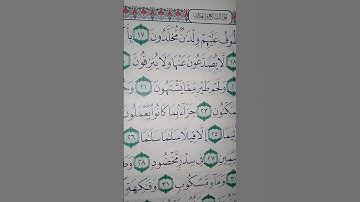 طُوفُ عَلَيْهِمْ وِلْدَٰنٌ مُّخَلَّدُونَ ١٧ بِأَ
١٨ لَّا يُصَدَّعُونَ عَنْهَا وَلَا يُنزِفُونَ
وَلَحْمِ طَيْرٍ مِّمَّا يَشْتَهُونَ ٢١ وَحُ
مَكْنُونِ ٢٣ جَزَآءًۢ بِمَا كَانُوا۟ يَعْمَلُونَ
ثِيمًا ٢٥ إِلَّا قِيلًا سَلَٰمًا سَلَٰمًا ٢٦
يَمِينِ ٢٧ فِى سِدْرٍ مَّخْضُودٍ ٢٨ وَطَ
وَمَآءٍ مَّسْكُوبٍ ٣١ وَفَٰكِهَةٍ